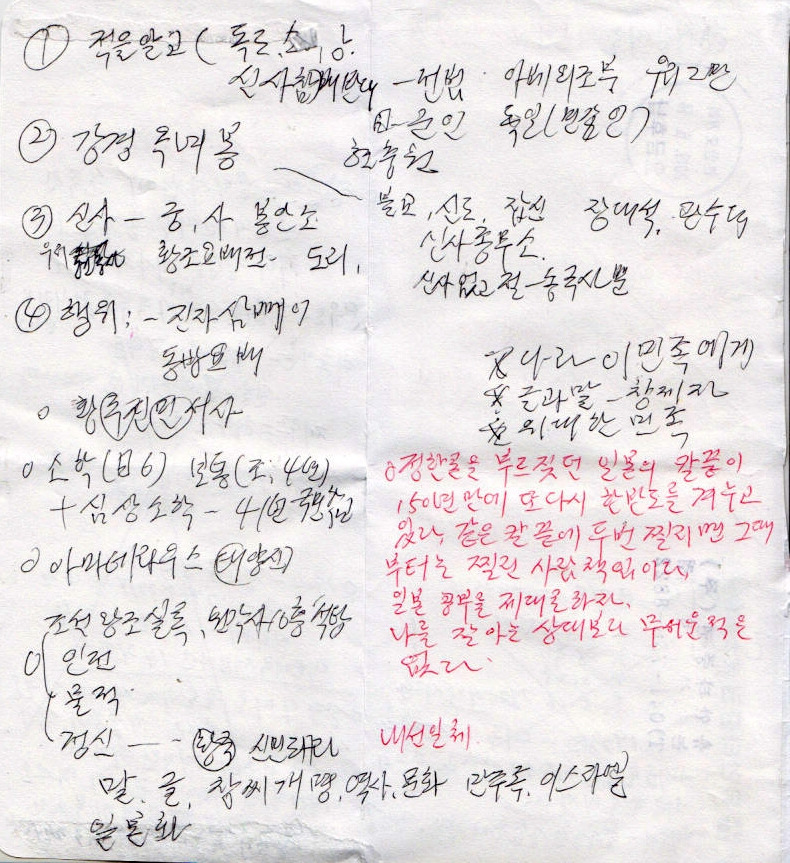 ① 적을알고 ( 독도, 소, 강.
신사참배반대 - 헌법. 아베외조부
日-군인 독일(
현충원
② 강경 옥녀봉
③ 신사 - 궁, 사 봉안소
황조요배전- 도리,
불교, 신도, 잡신 장대석,
신사종무소.
신사없고 절-송국사뿐
④ 행위; - 진자삼빼이
동방요배
※나라 이민족에게
※글과말 - 창제자
※위대한민족
o 황국신민서사
o 소학(日6) 보통(조;4년)
+ 심상소학 - 41년
o 아마테라우스 (태양신)
o정한론을 부르짖던 일본의 칼끝이
150년만에 또다시 한반도를 겨누고
있다. 같은 칼끝에 두번 찔리면 그때
부터는 찔린 사람 책임이다.
일본 공부를 제대로하자.
나를 잘 아는 상대보다 무서운적은
없다.
조선왕조실록, 원각사10층석탑
o 인적
물적
정신 - - 황국 신민화
내선일체
말, 글, 창씨개명, 역사, 문화 만주족, 이스라엘
일본화